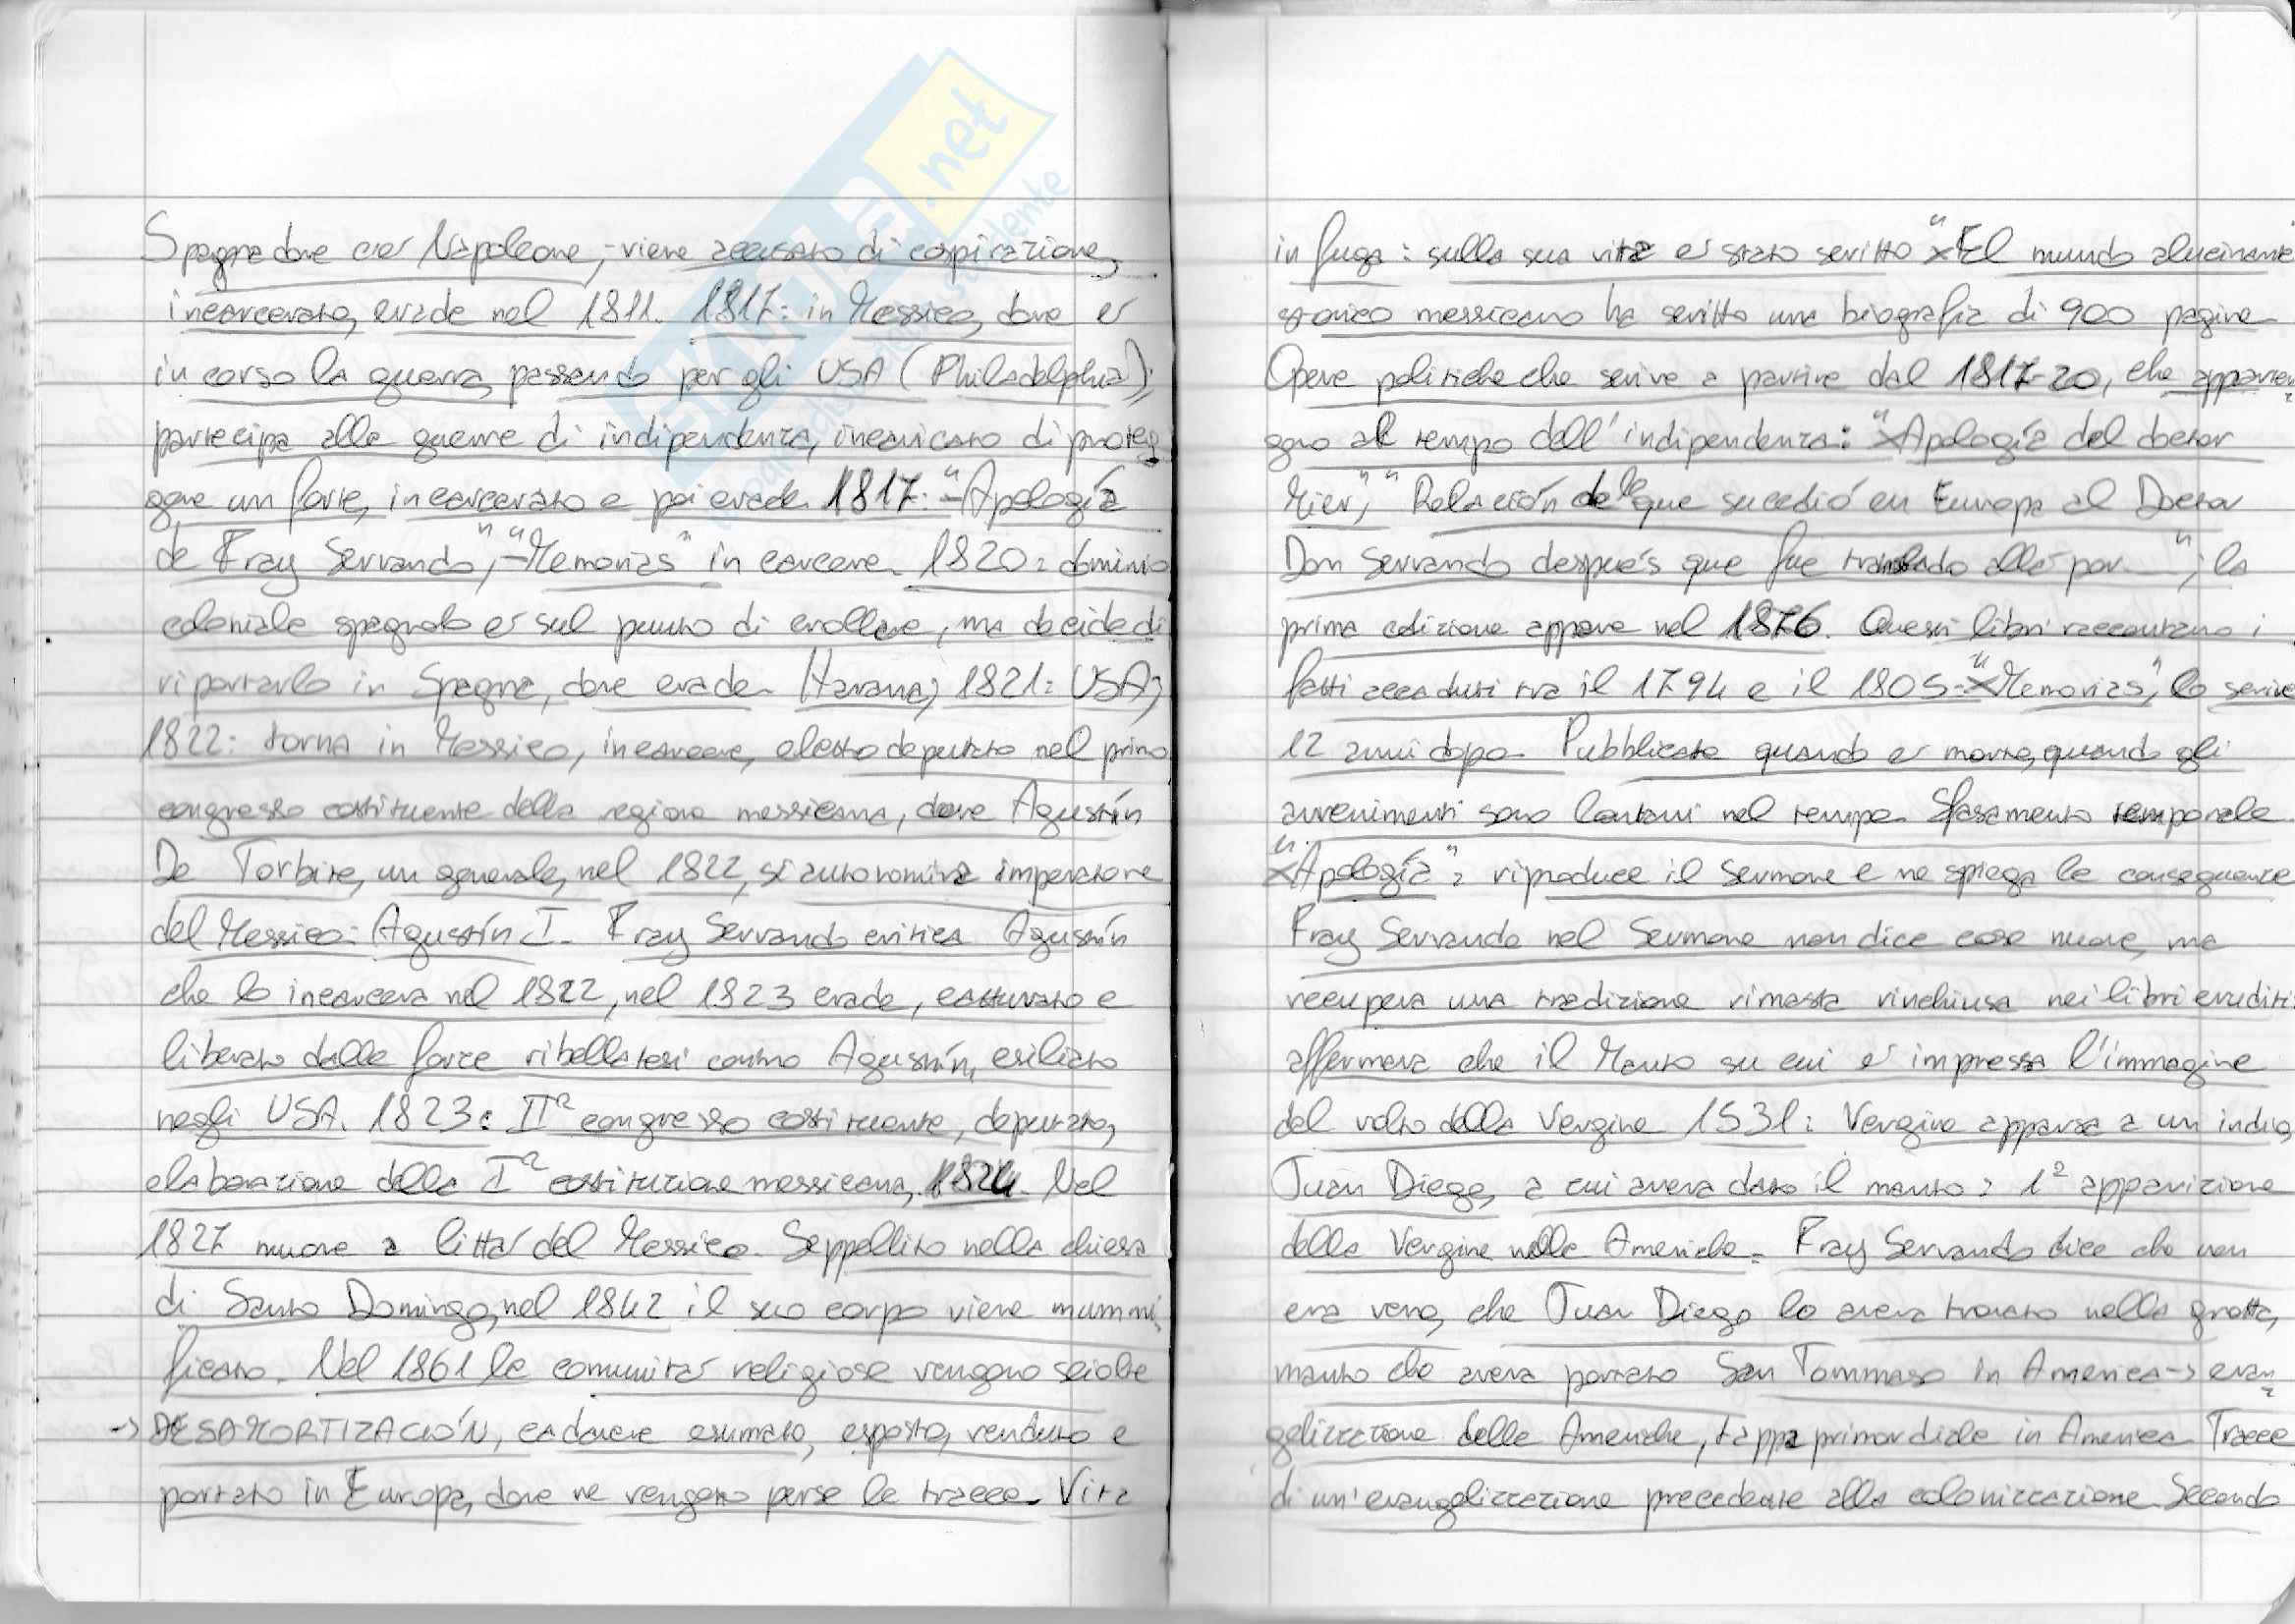 Spagna dove c'è Napoleone, viene accusato di cospirazione,
incarcerato, evade nel 1811. 1817: in Messico, dove è
in corso la guerra, passando per gli USA (Philadelphia);
partecipa alle guerre di indipendenza, incaricato di proteg
gere un forte, incarcerato e poi evade. 1817: "Apología
de Fray Servando", "Memorias" in carcere. 1820: dominio
coloniale spagnolo è sul punto di crollare, ma decide di
riportarlo in Spagna, dove evade. Havana; 1821: USA;
1822: torna in Messico, in carcere, eletto deputato nel primo
congresso costituente della regione messicana, dove Agustín
De Torbite, un generale, nel 1822, si autonomina imperatore
del Messico: Agustín I. Fray Servando critica Agustín
che lo incarcera nel 1822, nel 1823 evade, catturato e
liberato dalle forze ribellatesi contro Agustín, esiliato
negli USA. 1823: IIª congresso costituente, deputato,
elaborazione della Iª costituzione messicana, 1824. Nel
1827 muore a Città del Messico. Seppellito nella chiesa
di Santo Domingo, nel 1842 il suo corpo viene mummi
ficato. Nel 1861 le comunità religiose vengono sciolte
-> DESAMORTIZACIÓN, cadavere esumato, esposto, venduto e
portato in Europa, dove ne vengono perse le tracce. Vita
in fuga: sulla sua vita è stato scritto "El mundo alucinante"
storico messicano ha scritto una biografia di 900 pagine
Opere politiche che scrive a partire dal 1817-20, che apparten
gono al tempo dell'indipendenza: "Apología del doctor
Mier", "Relación de lo que sucedió en Europa al Doctor
Don Servando después que fue trasladado allá por "; la
prima edizione appare nel 1876. Questi libri raccontano i
fatti accaduti tra il 1794 e il 1805: "Memorias", lo scrive
12 anni dopo. Pubblicate quando è morto, quando gli
avvenimenti sono lontani nel tempo. Sfasamento temporale.
"Apología": riproduce il Sermone e ne spiega le conseguenze
Fray Servando nel Sermone non dice cose nuove, ma
recupera una tradizione rimasta rinchiusa nei libri eruditi:
affermava che il Manto su cui è impressa l'immagine
del volto della Vergine 1531: Vergine apparsa a un indio,
Juan Diego, a cui aveva dato il manto: 1ª apparizione
della Vergine nelle Americhe. Fray Servando dice che non
era vero, che Juan Diego lo aveva trovato nella grotta,
manto che aveva portato San Tommaso in America -> evan
gelizzazione delle Americhe, tappa primordiale in America. Tracce
di un'evangelizzazione precedente alla colonizzazione. Secondo
SKUOLA.net